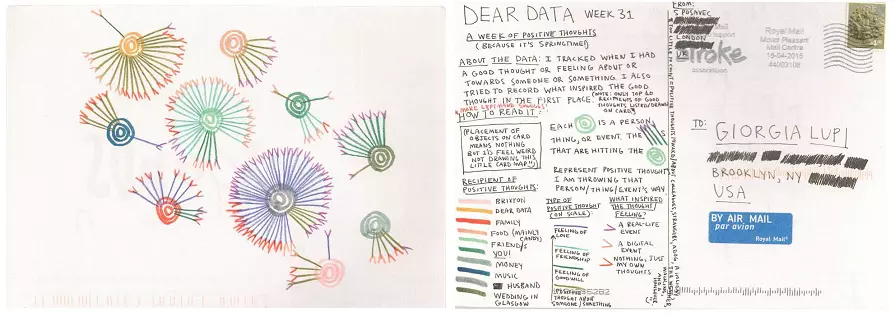 DEAR DATA WEEK 31
A WEEK OF POSITIVE THOUGHTS
(BECAUSE IT'S SPRINGTIME!)
ABOUT THE DATA: I TRACKED WHEN I HAD
A GOOD THOUGHT OR FEELING ABOUT OR
TOWARDS SOMEONE OR SOMETHING. I ALSO
TRIED TO RECORD WHAT INSPIRED THE GOOD
THOUGHT IN THE FIRST PLACE.
(NOTE: ONLY TOP 10
RECIPIENTS OF GOOD
THOUGHTS LISTED/DRAWN
ON CARD)
HOW TO READ IT:
(PLACEMENT OF
OBJECTS ON CARD
MEANS NOTHING
BUT I'D FEEL WEIRD
NOT DRAWING THIS
LITTLE CARD MAP)
EACH IS A PERSON,
THING, OR EVENT. THE
THAT ARE HITTING THE
REPRESENT POSITIVE THOUGHTS
I AM THROWING THAT
PERSON/THING/EVENT'S WAY
RECIPIENT OF
POSITIVE THOUGHTS:
BRIXTON
DEAR DATA
FAMILY
FOOD (MAINLY
CANDY)
FRIEND/S
YOU!
MONEY
MUSIC
HUSBAND
WEDDING IN
GLASGOW
TYPE OF
POSITIVE THOUGHT
(ON SCALE):
FEELING OF
LOVE
FEELING OF
FRIENDSHIP
FEELING OF
GOODWILL
POSITIVE
THOUGHT ABOUT
SOMEONE/SOMETHING
WHAT INSPIRED
THE THOUGHT/
FEELING?
A REAL-LIFE
EVENT
A DIGITAL
EVENT
NOTHING, JUST
MY OWN
THOUGHTS
FROM:
S POSAVEC
LONDON
UK
support
stroke
association
Royal Mail
Mount Pleasant
Mail Centre
TO:
GIORGIA LUPI
BROOKLYN, NY
USA
BY AIR MAIL
par avion
Royal Mail